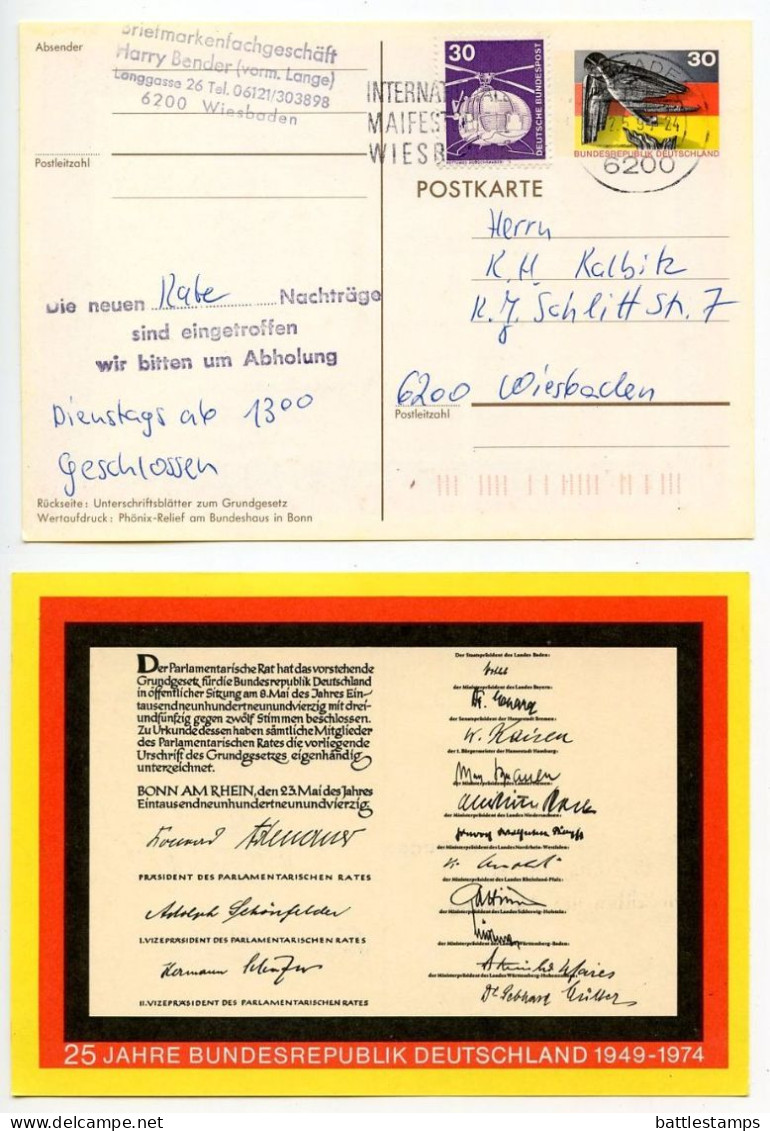 Absender
Briefmarkenfachgeschäft
Harry Bender (vorm. Lange)
Langgasse 26 Tel. 06121/303898
6200 Wiesbaden
Postleitzahl
30
DEUTSCHE BUNDESPOST
30
BUNDESREPUBLIK DEUTSCHLAND
6200
POSTKARTE
Herrn
K. H. Kalbitz
K. J. Schlitt Str. 7
6200 Wiesbaden
Postleitzahl
Die neuen Kabe Nachträge
sind eingetroffen
wir bitten um Abholung
Dienstags ab 13 00
Geschlossen
Rückseite: Unterschriftsblätter zum Grundgesetz
Wertaufdruck: Phönix-Relief am Bundeshaus in Bonn
Der Parlamentarische Rat hat das vorstehende
Grundgesetz für die Bundesrepublik Deutschland
in öffentlicher Sitzung am 8. Mai des Jahres Ein-
tausendneunhundertneunundvierzig mit drei-
undfünfzig gegen zwölf Stimmen beschlossen.
Zu Urkunde dessen haben sämtliche Mitglieder
des Parlamentarischen Rates die vorliegende
Urschrift des Grundgesetzes eigenhändig
unterzeichnet.
BONN AM RHEIN, den 23. Mai des Jahres
Eintausendneunhundertneunundvierzig
Konrad Adenauer
PRÄSIDENT DES PARLAMENTARISCHEN RATES
Adolph Schönfelder
I. VIZEPRÄSIDENT DES PARLAMENTARISCHEN RATES
Hermann Schäfer
II. VIZEPRÄSIDENT DES PARLAMENTARISCHEN RATES
Der Staatspräsident des Landes Baden:
der Ministerpräsident des Landes Bayern:
Dr. Ehard
der Senatspräsident der Hansestadt Bremen:
W. Kaisen
der 1. Bürgermeister der Hansestadt Hamburg:
Max Brauer
der Ministerpräsident des Landes Niedersachsen:
der Ministerpräsident des Landes Nordrhein-Westfalen:
K. Arnold
der Ministerpräsident des Landes Rheinland-Pfalz:
Altmeier
der Ministerpräsident des Landes Schleswig-Holstein:
der Ministerpräsident des Landes Württemberg-Baden:
Reinhold Maier
der Ministerpräsident des Landes Württemberg-Hohenzollern:
Dr. Gebhard Müller
25 JAHRE BUNDESREPUBLIK DEUTSCHLAND 1949-1974
battlestamps